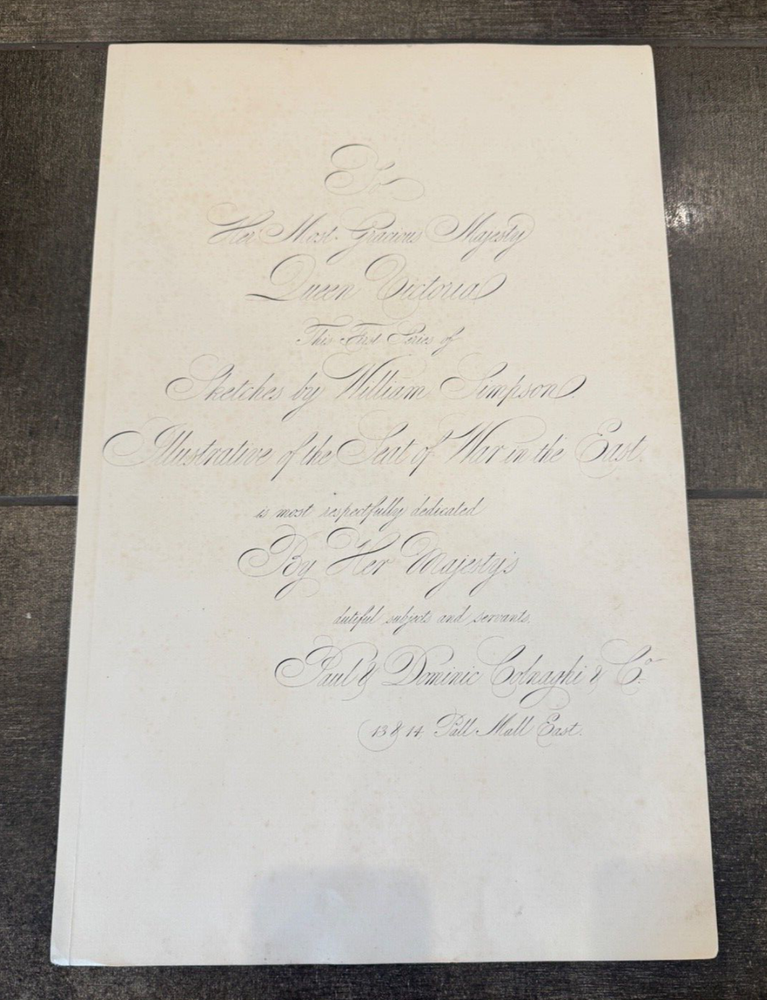 To
Her Most Gracious Majesty
Queen Victoria
This First Series of
Sketches by William Simpson
Illustrative of the Seat of War in the East.
is most respectfully dedicated
By Her Majesty's
dutiful subjects and servants,
Paul & Dominic Colnaghi & Co.
13 & 14 Pall Mall East.